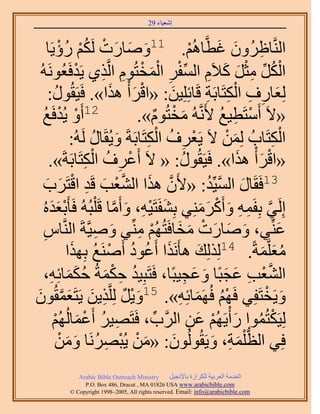 إشعياء 29
النَّاظِرُونَ غَطَّاهُمْ. 11وَصَارَتْ لَكُمْ رُؤْيَا
الْكُلِّ مِثْلَ كَلاَمِ السِّفْرِ الْمَخْتُومِ الَّذِي يَدْفَعُونَهُ
لِعَارِفِ الْكِتَابَةِ قَائِلِينَ: «اقْرَأْ هذَا». فَيَقُولُ:
«لاَ أَسْتَطِيعُ لأَنَّهُ مَخْتُومٌ». 12أَوْ يُدْفَعُ
الْكِتَابُ لِمَنْ لاَ يَعْرِفُ الْكِتَابَةَ وَيُقَالُ لَهُ:
«اقْرَأْ هذَا». فَيَقُولُ: « لاَ أَعْرِفُ الْكِتَابَةَ».
13فَقَالَ السَّيِّدُ: «لأَنَّ هذَا الشَّعْبَ قَدِ اقْتَرَبَ
إِلَيَّ بِفَمِهِ وَأَكْرَمَنِي بِشَفَتَيْهِ، وَأَمَّا قَلْبُهُ فَأَبْعَدَهُ
عَنِّي، وَصَارَتْ مَخَافَتُهُمْ مِنِّي وَصِيَّةَ النَّاسِ
مُعَلَّمَةً. 14لِذلِكَ هأَنَذَا أَعُودُ أَصْنَعُ بِهذَا
الشَّعْبِ عَجَبًا وَعَجِيبًا، فَتَبِيدُ حِكْمَةُ حُكَمَائِهِ،
وَيَخْتَفِي فَهْمُ فُهَمَائِهِ». 15وَيْلٌ لِلَّذِينَ يَتَعَمَّقُونَ
لِيَكْتُمُوا رَأْيَهُمْ عَنِ الرَّبِّ، فَتَصِيرُ أَعْمَالُهُمْ
فِي الظُّلْمَةِ، وَيَقُولُونَ: «مَنْ يُبْصِرُنَا وَمَنْ
Arabic Bible Outreach Ministry الخدمة العربية للكرازة بالإنجيل
P.O. Box 486, Dracut , MA 01826 USA www.arabicbible.com
© Copyright 1998–2005, All rights reserved. Email: info@arabicbible.com